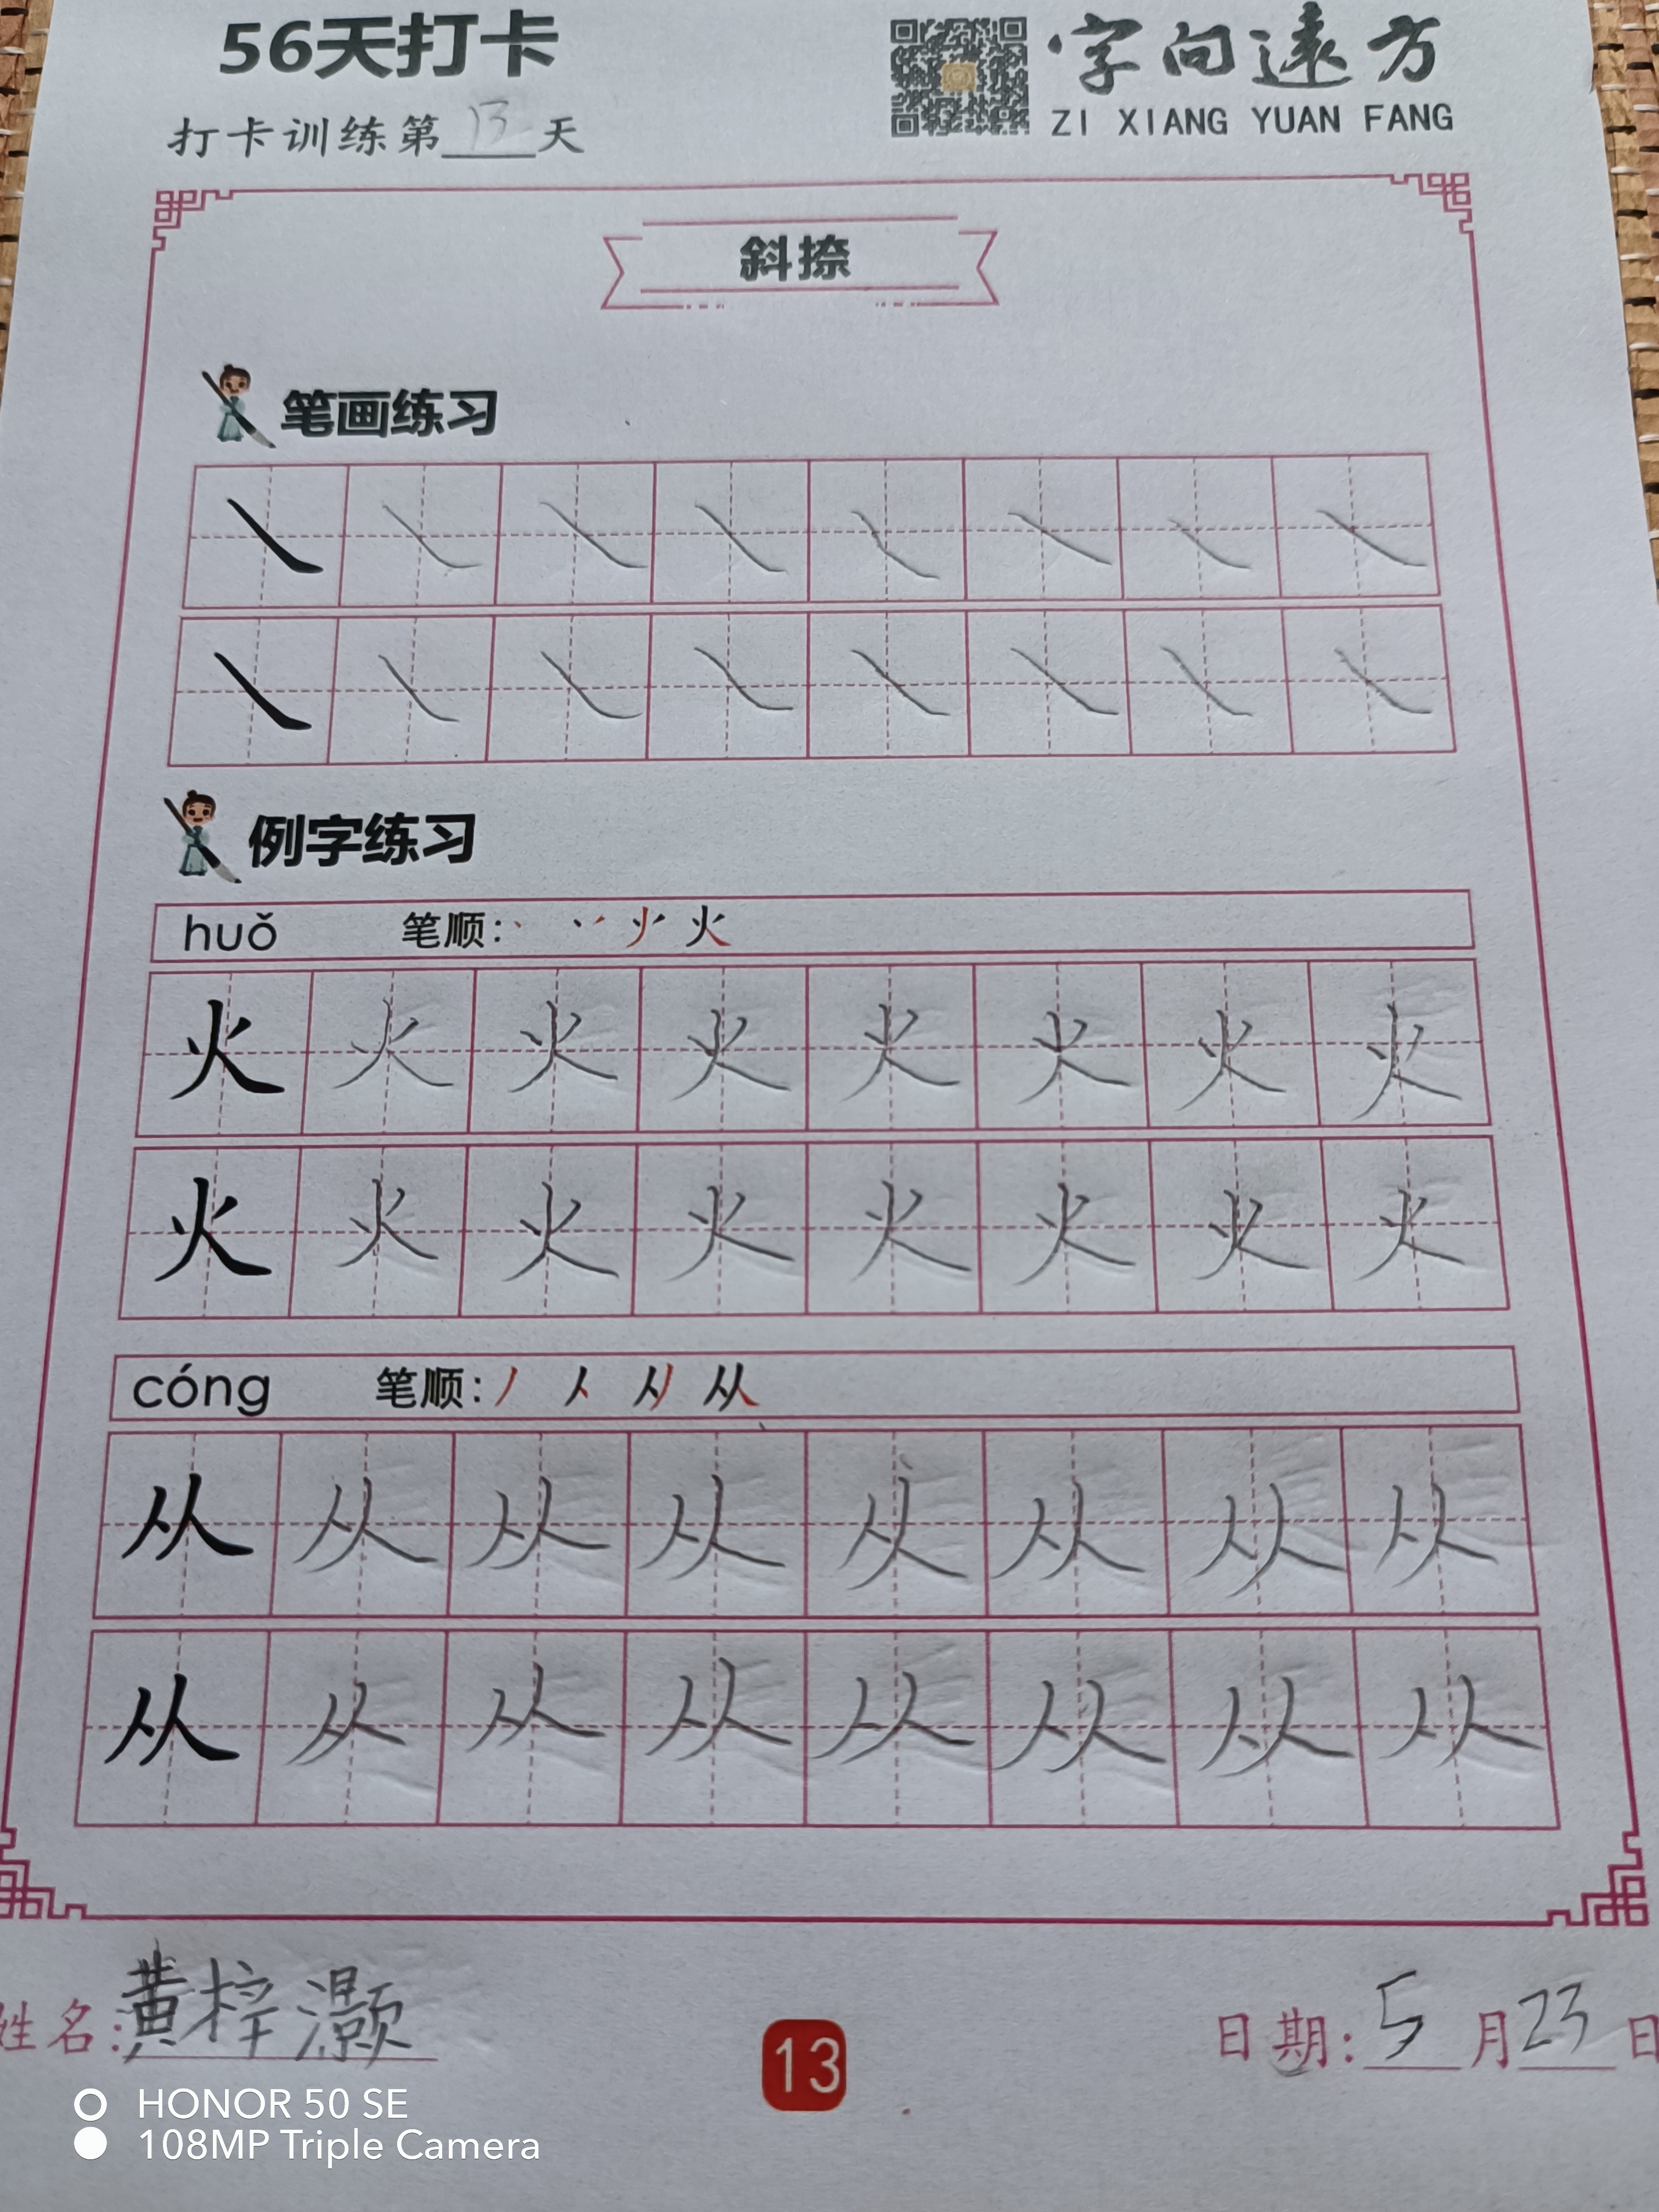 56天打卡
字向远方
ZI XIANG YUAN FANG
打卡训练第13天
斜捺
笔画练习
例字练习
huǒ 笔顺: 火
火 火 火 火 火 火 火 火
火 火 火 火 火 火 火 火
cóng 笔顺: 从
从 从 从 从 从 从 从 从
从 从 从 从 从 从 从 从
姓名: 黄梓灏
13
日期: 5月23日
HONOR 50 SE
108MP Triple Camera